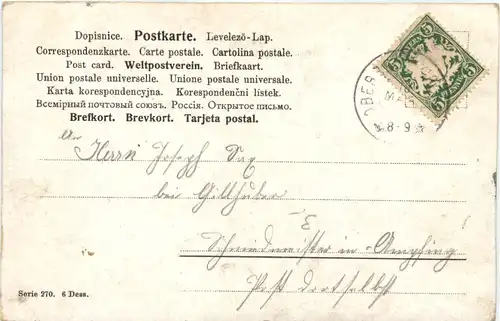 Dopisnice. Postkarte. Levelező-Lap.
Correspondenzkarte. Carte postale. Cartolina postale.
Post card. Weltpostverein. Briefkaart.
Union postale universelle. Unione postale universale.
Karta korespondencyjna. Korespondenční lístek.
Всемірный почтовый союзъ. Россія. Открытое письмо.
Brefkort. Brevkort. Tarjeta postal.
BAYERN
5
OBER
MAI
8-9
An Herrn Joseph Sax
bei Gillhuber
Schneidmeister in Ampfing
Post dortselbst
Serie 270. 6 Dess.